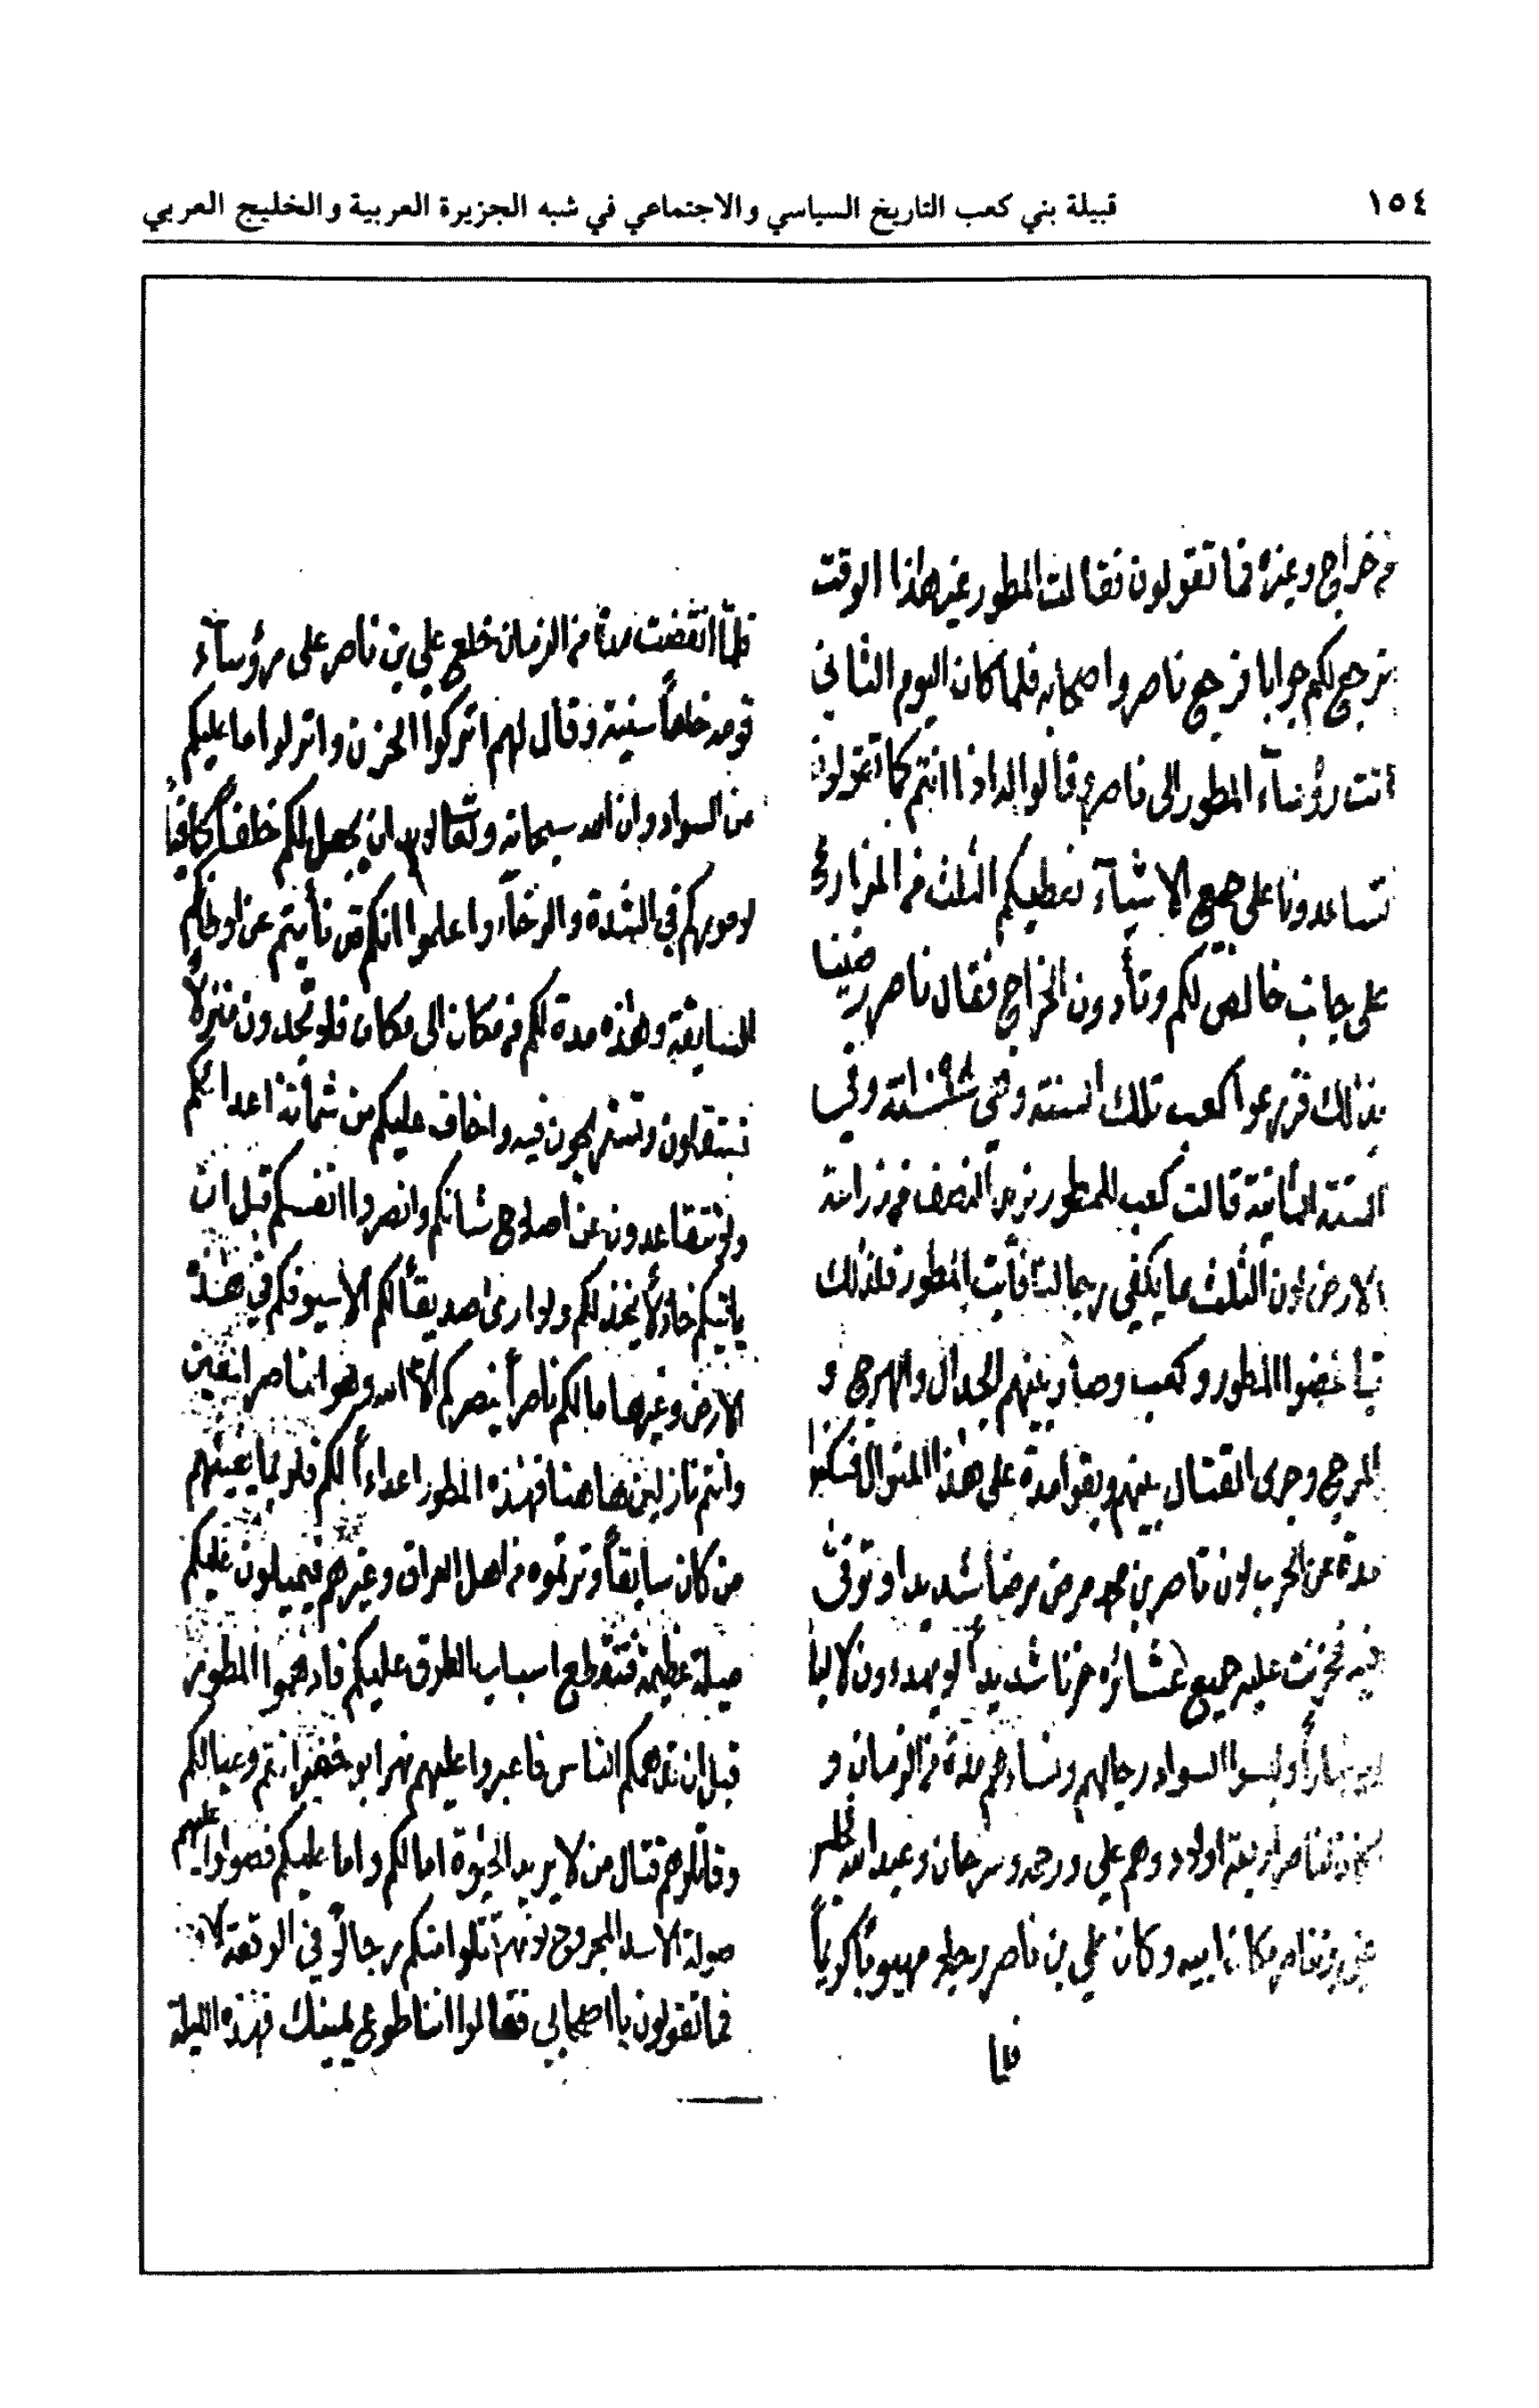 ١٥٤
قبيلة بني كعب التاريخ السياسي والاجتماعي في شبه الجزيرة العربية والخليج العربي
من خراج وغيره فما تقولون فقالت المطور غير هذا الوقت
نرجع لكم جوابا فرجع ناصر واصحابه فلما كان اليوم الثاني
اتت رؤساء المطور الى ناصر وقالوا له اذا انتم كما تقولون
تساعدونا على جميع الاشياء نعطيكم الثلث من المزارع
على جانب خالص لكم وتأدون الخراج فقال ناصر رضينا
بذلك فزرعوا كعب تلك السنة وهي سنة ١٠٩٨ وفي
السنة الثانية قالت كعب للمطور نريد النصف من زراعة
الارض لان الثلث ما يكفي رجالنا فأبت المطور فلذلك
تباغضوا المطور وكعب وصار بينهم الجدال والهرج و
المرج وجرى القتال بينهم وبقوا مدة على هذا المنوال فسكنوا
مدة عن الحرب لان ناصر بن محمد مرض مرضا شديدا وتوفى
فيه فحزنت عليه جميع عشائره حزنا شديداً لا يهدءون لا ليلا
ولا نهاراً ولبسوا السواد رجالهم ونساءهم مدة من الزمان و
لناصر اربعة اولاد وهم علي ورحمه وسرحان وعبدالله فجلس
علي بن ناصر مكان ابيه وكان علي بن ناصر رجلا مهيوباً كريماً
فلما
فلمّا انقضت مدة من الزمان خلع علي بن ناصر على رؤساء
قومه خلعاً سنية وقال لهم اتركوا الحزن وانزلوا ما عليكم
من السواد وان الله سبحانه وتعالى لابد ان يجعل لكم خلفاً كافياً
لاموركم في الشدة والرخاء واعلموا انكم قد نأيتم عن اوطانكم
السابقة وهذه مدة لكم من مكان الى مكان فلا تجدون منزلاً
تستقلون وتستريحون فيه واخاف عليكم من شماتة اعدائكم
ولا تتقاعدون عن اصلاح شانكم وانصروا انفسكم قبل ان
يأتيكم خاذلاً يخذلكم ولا ارى صديقاً لكم الا سيوفكم في هذه
الارض وغيرها مالكم ناصراً ينصركم الا الله وهو الناصر المعين
وانتم نازلين هاهنا فهذه المطور اعداءاً لكم فلربما يعينهم
من كان سابقاً وترتموه من اهل العراق وغيرهم فيميلون عليكم
ميلة عظيمة فتقطع اسباب الطرق عليكم فادهموا المطور
قبل ان تدهمكم الناس فاعبروا عليهم نهر ابو خضير انتم وعيالكم
وقاتلوهم قتال من لا يريد الحيوة اما لكم واما عليكم فصولوا عليهم
صولة الاسد المجروح لانهم قتلوا منكم رجالا في الوقعة
فما تقولون يا اصحابي فقالوا اننا طوع يمينك فهذه الليلة